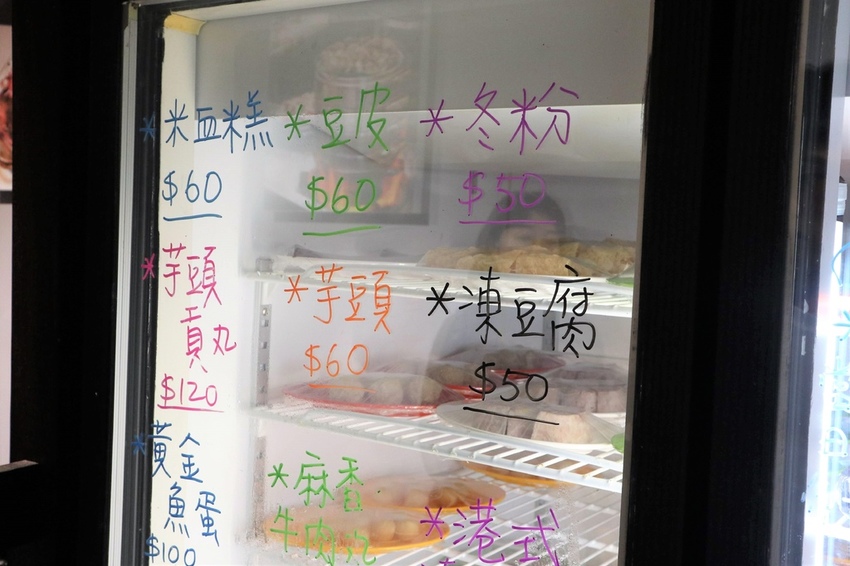 *米血糕
$60
*豆皮
$60
*冬粉
$50
*芋頭
貢丸
$120
*芋頭
$60
*凍豆腐
$50
*黃金
魚蛋
$100
*麻香
牛肉丸
*港式